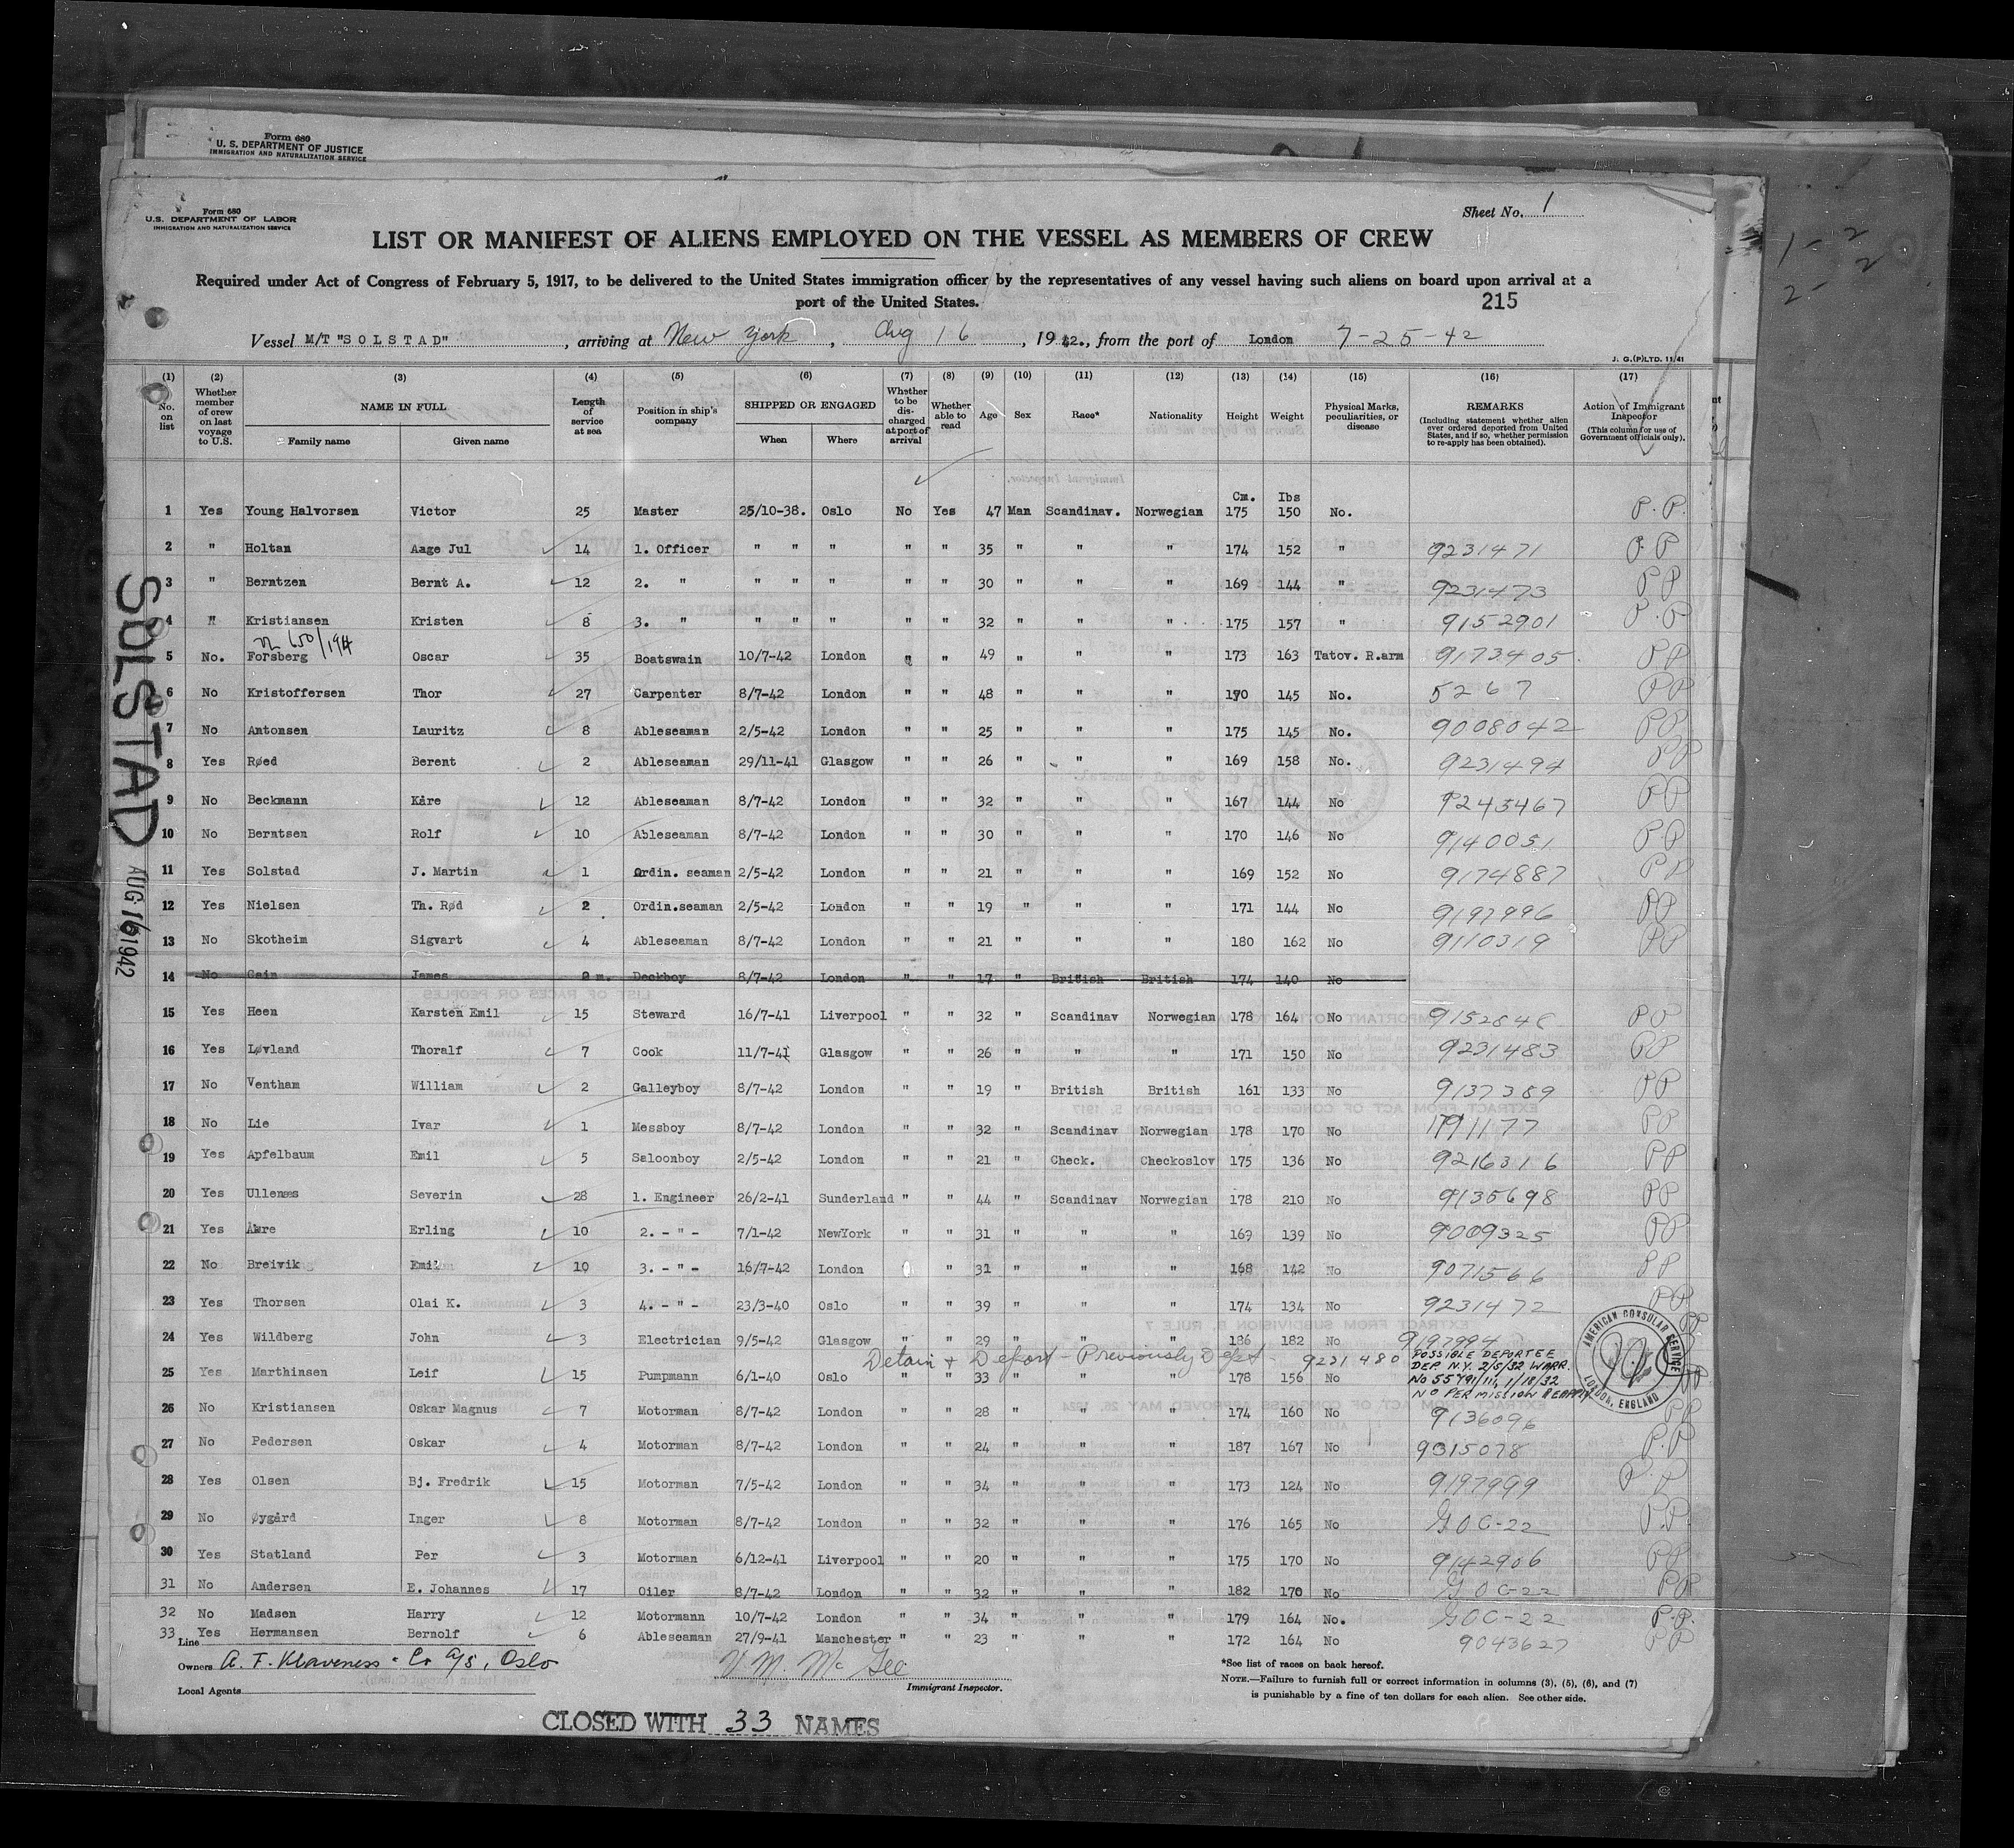 Form 680
U. S. DEPARTMENT OF JUSTICE
IMMIGRATION AND NATURALIZATION SERVICE
Form 680
U.S. DEPARTMENT OF LABOR
IMMIGRATION AND NATURALIZATION SERVICE
Sheet No. 1
LIST OR MANIFEST OF ALIENS EMPLOYED ON THE VESSEL AS MEMBERS OF CREW
Required under Act of Congress of February 5, 1917, to be delivered to the United States immigration officer by the representatives of any vessel having such aliens on board upon arrival at a
port of the United States.
215
Vessel M/T "SOLSTAD", arriving at New York, Aug 16, 1942., from the port of London 7-25-42
J. G.(P)LTD. 11/41
(1) (2) (3) (4) (5) (6) (7) (8) (9) (10) (11) (12) (13) (14) (15) (16) (17)
No. on list
Whether member of crew on last voyage to U.S.
NAME IN FULL
Family name Given name
Length of service at sea
Position in ship's company
SHIPPED OR ENGAGED
When Where
Whether to be discharged at port of arrival
Whether able to read
Age
Sex
Race*
Nationality
Height
Weight
Physical Marks, peculiarities, or disease
REMARKS
(Including statement whether alien ever ordered deported from United States, and if so, whether permission to re-apply has been obtained).
Action of Immigrant Inspector
(This column for use of Government officials only).
Cm. Lbs
1 Yes Young Halvorsen Victor 25 Master 25/10-38. Oslo No Yes 47 Man Scandinav. Norwegian 175 150 No. P.P.
2 " Holtan Aage Jul 14 1. Officer " " " " " 35 " " " 174 152 " 9231471 P.P
3 " Berntzen Bernt A. 12 2. " " " " " " 30 " " " 169 144 " 9231473 PP
4 " Kristiansen Kristen 8 3. " " " " " " 32 " " " 175 157 " 9152901 P.P
5 No. Forsberg Oscar 35 Boatswain 10/7-42 London " " 49 " " " 173 163 Tatov. R.arm 9173405 PP
6 No Kristoffersen Thor 27 Carpenter 8/7-42 London " " 48 " " " 170 145 No. 5267 PP
7 No Antonsen Lauritz 8 Ableseaman 2/5-42 London " " 25 " " " 175 145 No. 9008042 PP
8 Yes Røed Berent 2 Ableseaman 29/11-41 Glasgow " " 26 " " " 169 158 No. 9231494 PP
9 No Beckmann Kåre 12 Ableseaman 8/7-42 London " " 32 " " " 167 144 No 9245467 PP
10 No Berntsen Rolf 10 Ableseaman 8/7-42 London " " 30 " " " 170 146 No 9140051 P.P
11 Yes Solstad J. Martin 1 Ordin. seaman 2/5-42 London " " 21 " " " 169 152 No 9174887 PP
12 Yes Nielsen Th. Rød 2 Ordin.seaman 2/5-42 London " " 19 " " " 171 144 No 9197996 PP
13 No Skotheim Sigvart 4 Ableseaman 8/7-42 London " " 21 " " " 180 162 No 9110319 PP
14 No Cain James 2 m. Deckboy 8/7-42 London " " 17 " British British 174 140 No
15 Yes Heen Karsten Emil 15 Steward 16/7-41 Liverpool " " 32 " Scandinav Norwegian 178 164 No PP
16 Yes Løvland Thoralf 7 Cook 11/7-41 Glasgow " " 26 " " " 171 150 No 9231483 PP
17 No Ventham William 2 Galleyboy 8/7-42 London " " 19 " British British 161 133 No 9137389 PP
18 No Lie Ivar 1 Messboy 8/7-42 London " " 32 " Scandinav Norwegian 178 170 No PP
19 Yes Apfelbaum Emil 5 Saloonboy 2/5-42 London " " 21 " Check. Checkoslov 175 136 No 9216316 PP
20 Yes Ullenes Severin 28 1. Engineer 26/2-41 Sunderland " " 44 " Scandinav Norwegian 178 210 No 9135698 PP
21 Yes Åmre Erling 10 2. - " - 7/1-42 NewYork " " 31 " " " 169 139 No 9009325 PP
22 No Breivik Emil 10 3. - " - 16/7-42 London " 31 " " " 168 142 No 9071566 PP
23 Yes Thorsen Olai K. 3 4. - " - 23/3-40 Oslo " " 39 " " " 174 134 No 9231472 PP
24 Yes Wildberg John 3 Electrician 9/5-42 Glasgow " " 29 " " " 186 182 No 9197994 PP
Detain & Deport - Previously Dept - 9231480 POSSIBLE DEPORTEE
DEP. N.Y. 2/5/32 WARR.
25 Yes Marthinsen Leif 15 Pumpmann 6/1-40 Oslo " " 33 " " " 178 156 No No 55791/11, 1/18/32 PP
NO PERMISSION REAPPLY
AMERICAN CONSULAR SERVICE
LONDON, ENGLAND
26 No Kristiansen Oskar Magnus 7 Motorman 8/7-42 London " " 28 " " " 174 160 No 9136096 PP
27 No Pedersen Oskar 4 Motorman 8/7-42 London " " 24 " " " 187 167 No 9315078 P.P
28 Yes Olsen Bj. Fredrik 15 Motorman 7/5-42 London " " 34 " " " 173 124 No 9197999 P.P
29 No Øygård Inger 8 Motorman 8/7-42 London " " 32 " " " 176 165 No GOC-22 P.P.
30 Yes Statland Per 3 Motorman 6/12-41 Liverpool " " 20 " " " 175 170 No 9142906 PP
31 No Andersen E. Johannes 17 Oiler 8/7-42 London " " 32 " " " 182 170 No GOC-22 PP
32 No Madsen Harry 12 Motormann 10/7-42 London " " 34 " " " 179 164 No. GOC-22 P.P.
33 Yes Hermansen Bernolf 6 Ableseaman 27/9-41 Manchester " " 23 " " " 172 164 No 9043627 PP
Line
Owners A. F. Klaveness & Co A/S, Oslo
Local Agents
V. M. McGee
Immigrant Inspector.
*See list of races on back hereof.
NOTE.—Failure to furnish full or correct information in columns (3), (5), (6), and (7)
is punishable by a fine of ten dollars for each alien. See other side.
CLOSED WITH 33 NAMES
SOLSTAD AUG 16 1942